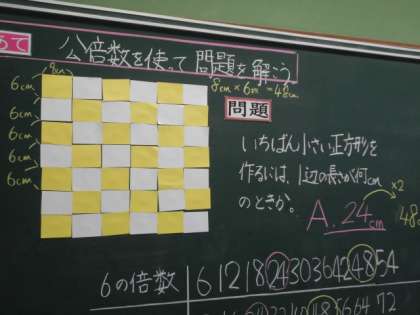 めあて
公倍数を使って問題を解こう
8cm
6cm
6cm
6cm
6cm
6cm
8cm×6cm=48cm
問題
いちばん小さい正方形を
作るには、1辺の長さが何cm
のときか。
A. 24cm
×2
48
6の倍数 6 12 18 24 30 36 42 48 54
48 56 64 72